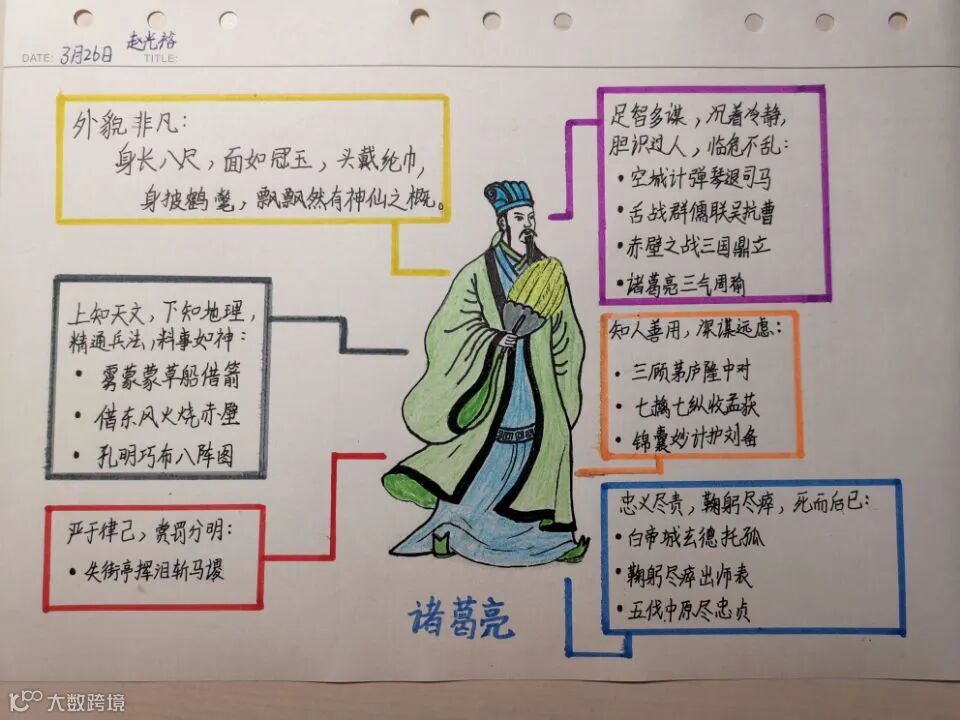 DATE: 3月26日
赵光裕
TITLE:
外貌非凡:
身长八尺,面如冠玉,头戴纶巾,
身披鹤氅,飘飘然有神仙之概。
上知天文,下知地理,
精通兵法,料事如神:
• 雾蒙蒙草船借箭
• 借东风火烧赤壁
• 孔明巧布八阵图
严于律己,赏罚分明:
• 失街亭挥泪斩马谡
足智多谋,沉着冷静,
胆识过人,临危不乱:
• 空城计弹琴退司马
• 舌战群儒联吴抗曹
• 赤壁之战三国鼎立
• 诸葛亮三气周瑜
知人善用,深谋远虑:
• 三顾茅庐隆中对
• 七擒七纵收孟获
• 锦囊妙计护刘备
忠义尽责,鞠躬尽瘁,死而后已:
• 白帝城玄德托孤
• 鞠躬尽瘁出师表
• 五伐中原尽忠贞
诸葛亮
大数跨境